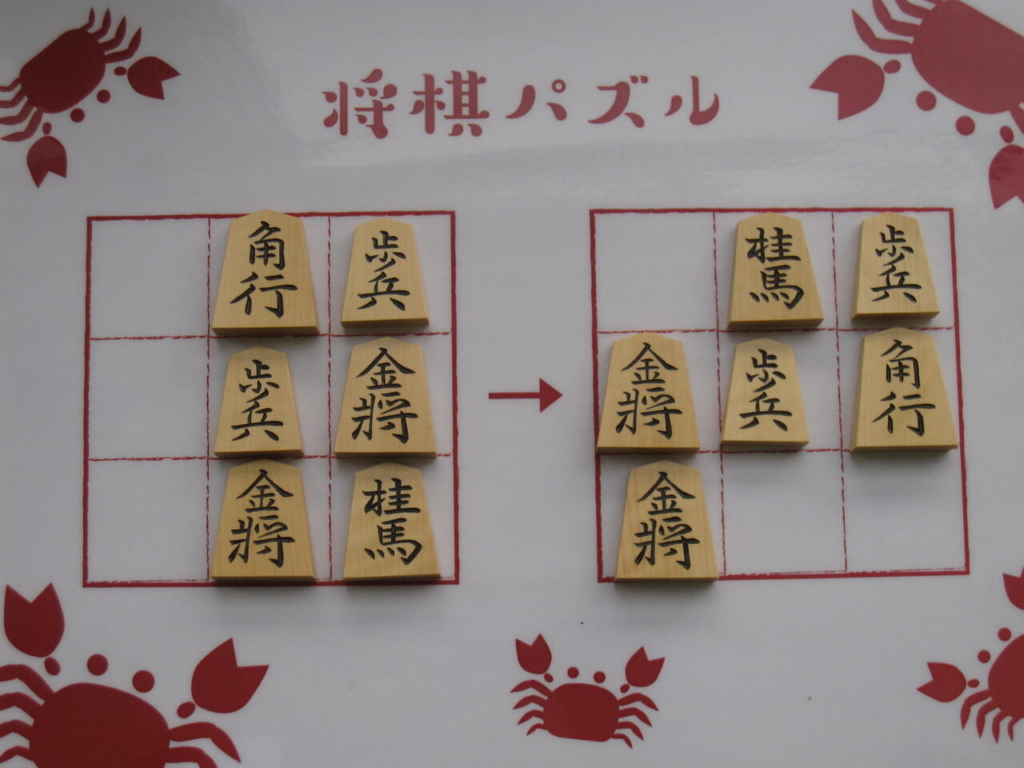 将棋パズル
角行 歩兵
歩兵 金将
金将 桂馬
桂馬 歩兵
金将 歩兵 角行
金将